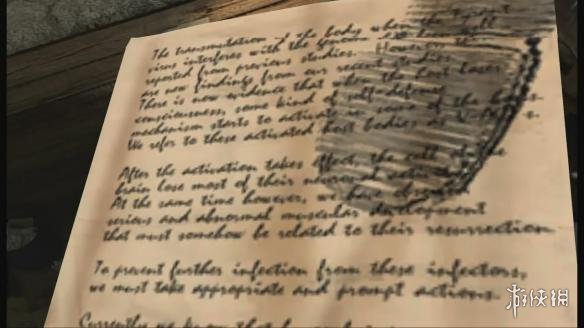 The transmutation of the body when the
virus interferes with the genome
reported from previous studies. However
are new findings from our recent studies.
There is now evidence that when the host loses
consciousness, some kind of self-defense
mechanism starts to activate in some of the
We refer to these activated host bodies as
After the activation takes effect, the cells of the
brain lose most of their
At the same time however, we have
serious and abnormal muscular development
that must somehow be related to their resurrection.
To prevent further infection from these infectors,
we must take appropriate and prompt actions.
Currently we know that
游侠网